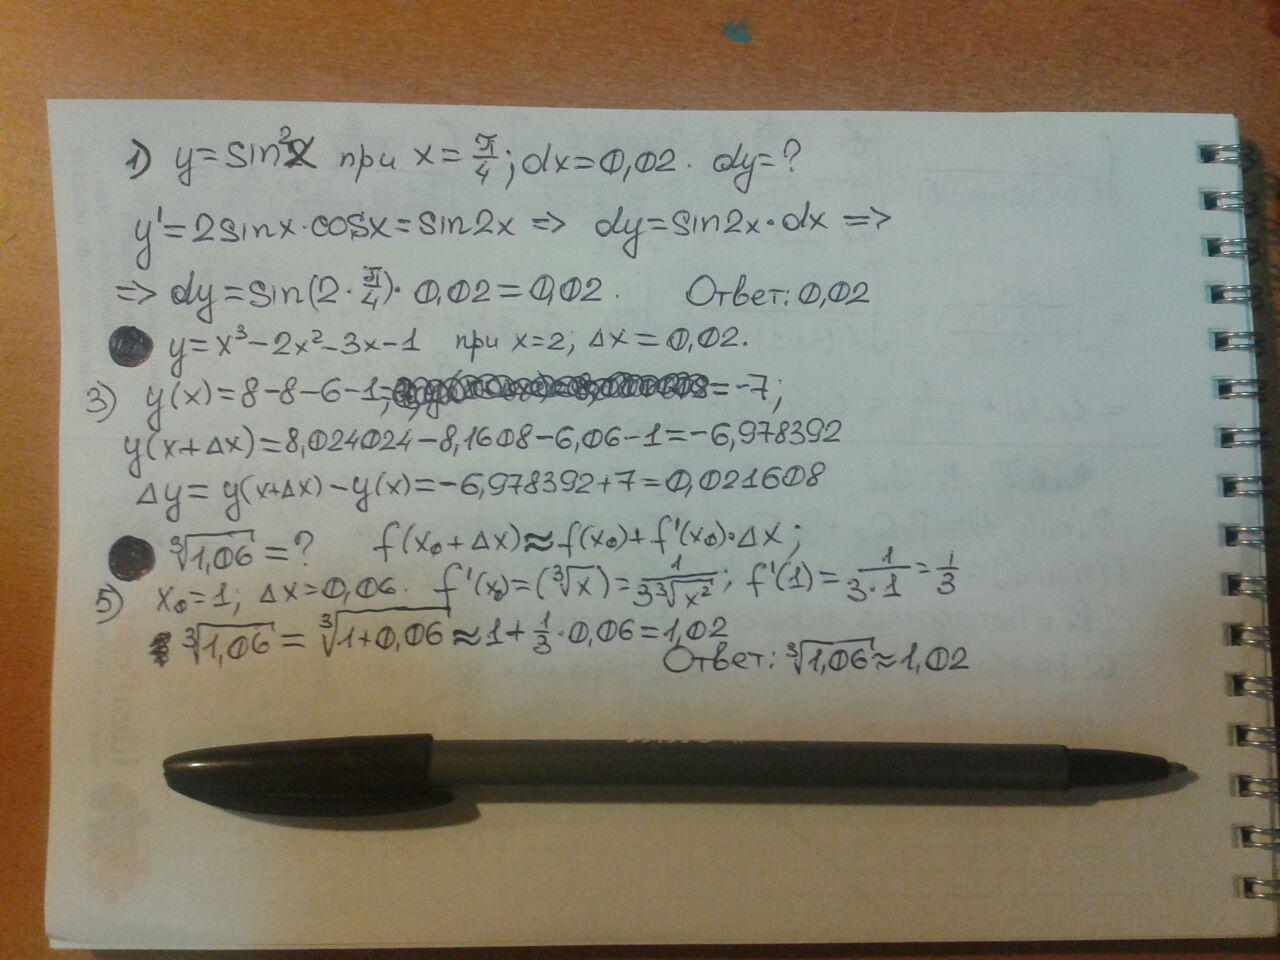 1) y = sin²x при x = π/4; dx = 0,02. dy = ?
y' = 2sinx · cosx = sin2x => dy = sin2x · dx =>
=> dy = sin(2 · π/4) · 0,02 = 0,02. Ответ: 0,02
y = x³ - 2x² - 3x - 1 при x = 2; Δx = 0,02.
3) y(x) = 8 - 8 - 6 - 1 = = -7;
y(x + Δx) = 8,024024 - 8,1608 - 6,06 - 1 = -6,978392
Δy = y(x+Δx) - y(x) = -6,978392 + 7 = 0,021608
∛1,06 = ? f(x₀ + Δx) ≈ f(x₀) + f'(x₀) · Δx;
5) x₀ = 1; Δx = 0,06. f'(x₀) = (∛x) = 1/(3∛x²); f'(1) = 1/(3·1) = 1/3
∛1,06 = ∛(1 + 0,06) ≈ 1 + 1/3 · 0,06 = 1,02
Ответ: ∛1,06 ≈ 1,02